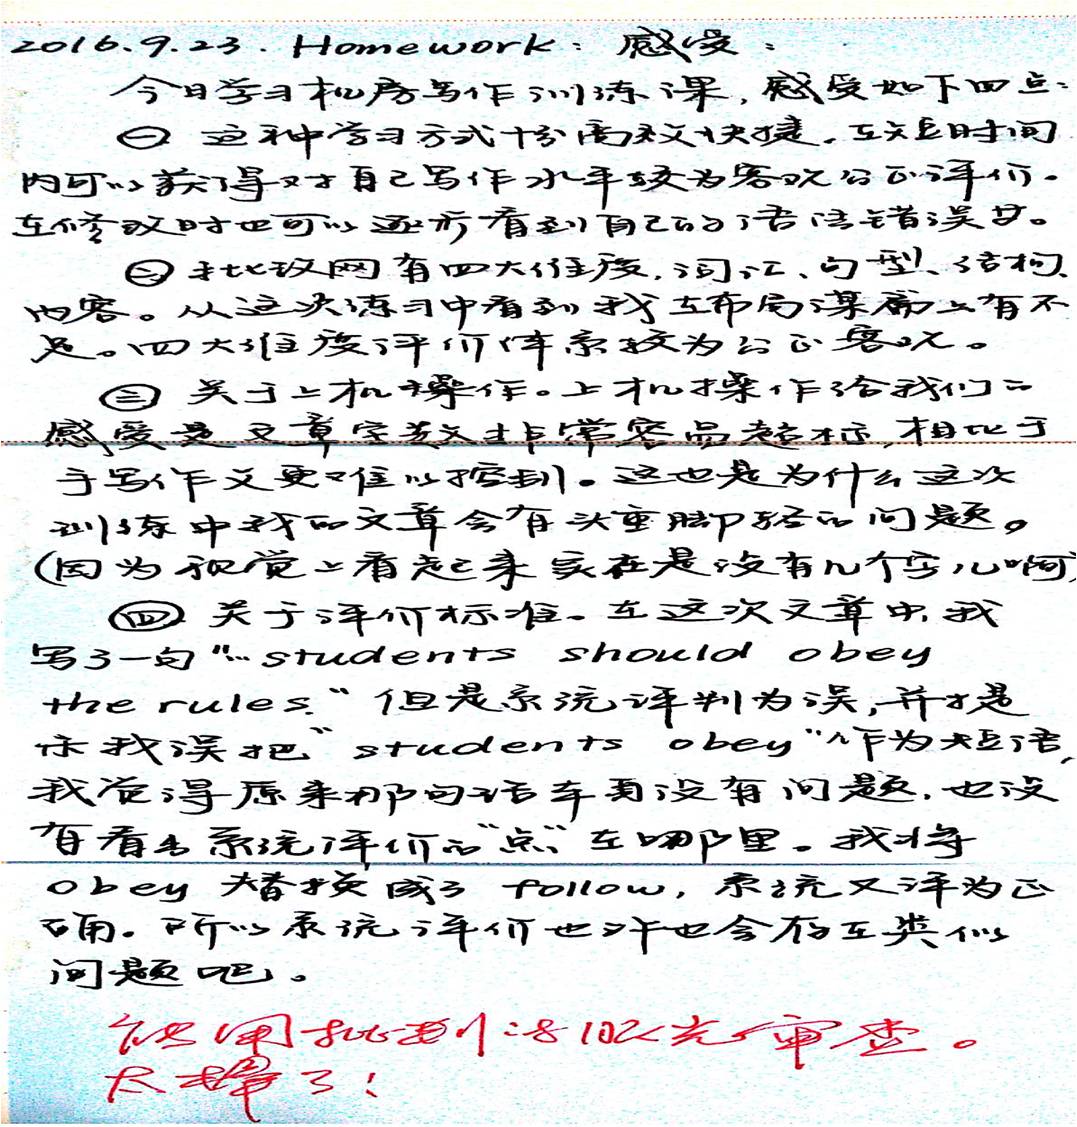 2016.9.23. Homework: 感受:
今日学习机房写作训练课,感受如下四点:
㊀ 这种学习方式十分高效快捷.在短时间
内可以获得对自己写作水平较为客观公正评价.
在修改时也可以逐步看到自己的语法错误等。
㊁ 批改网有四大维度,词汇、句型、结构、
内容。从这次练习中看到我在布局谋篇上有不
足。四大维度评价体系较为公正客观。
㊂ 关于上机操作。上机操作给我们的
感受是文章字数非常容易超标,相比于
手写作文更难以控制。这也是为什么这次
训练中我的文章会有头重脚轻的问题。
(因为视觉上看起来实在是没有几个字儿啊)
㊃ 关于评价标准.在这次文章中,我
写了一句"…students should obey
the rules."但是系统评判为误,并提
示我误把"students obey"作为短语,
我觉得原来那句话本身没有问题.也没
有看出系统评价的"点"在哪里。我将
obey 替换成了 follow,系统又评为正
确.所以系统评价也许也会存在类似
问题吧。
能用批判的眼光审查。
太棒了!